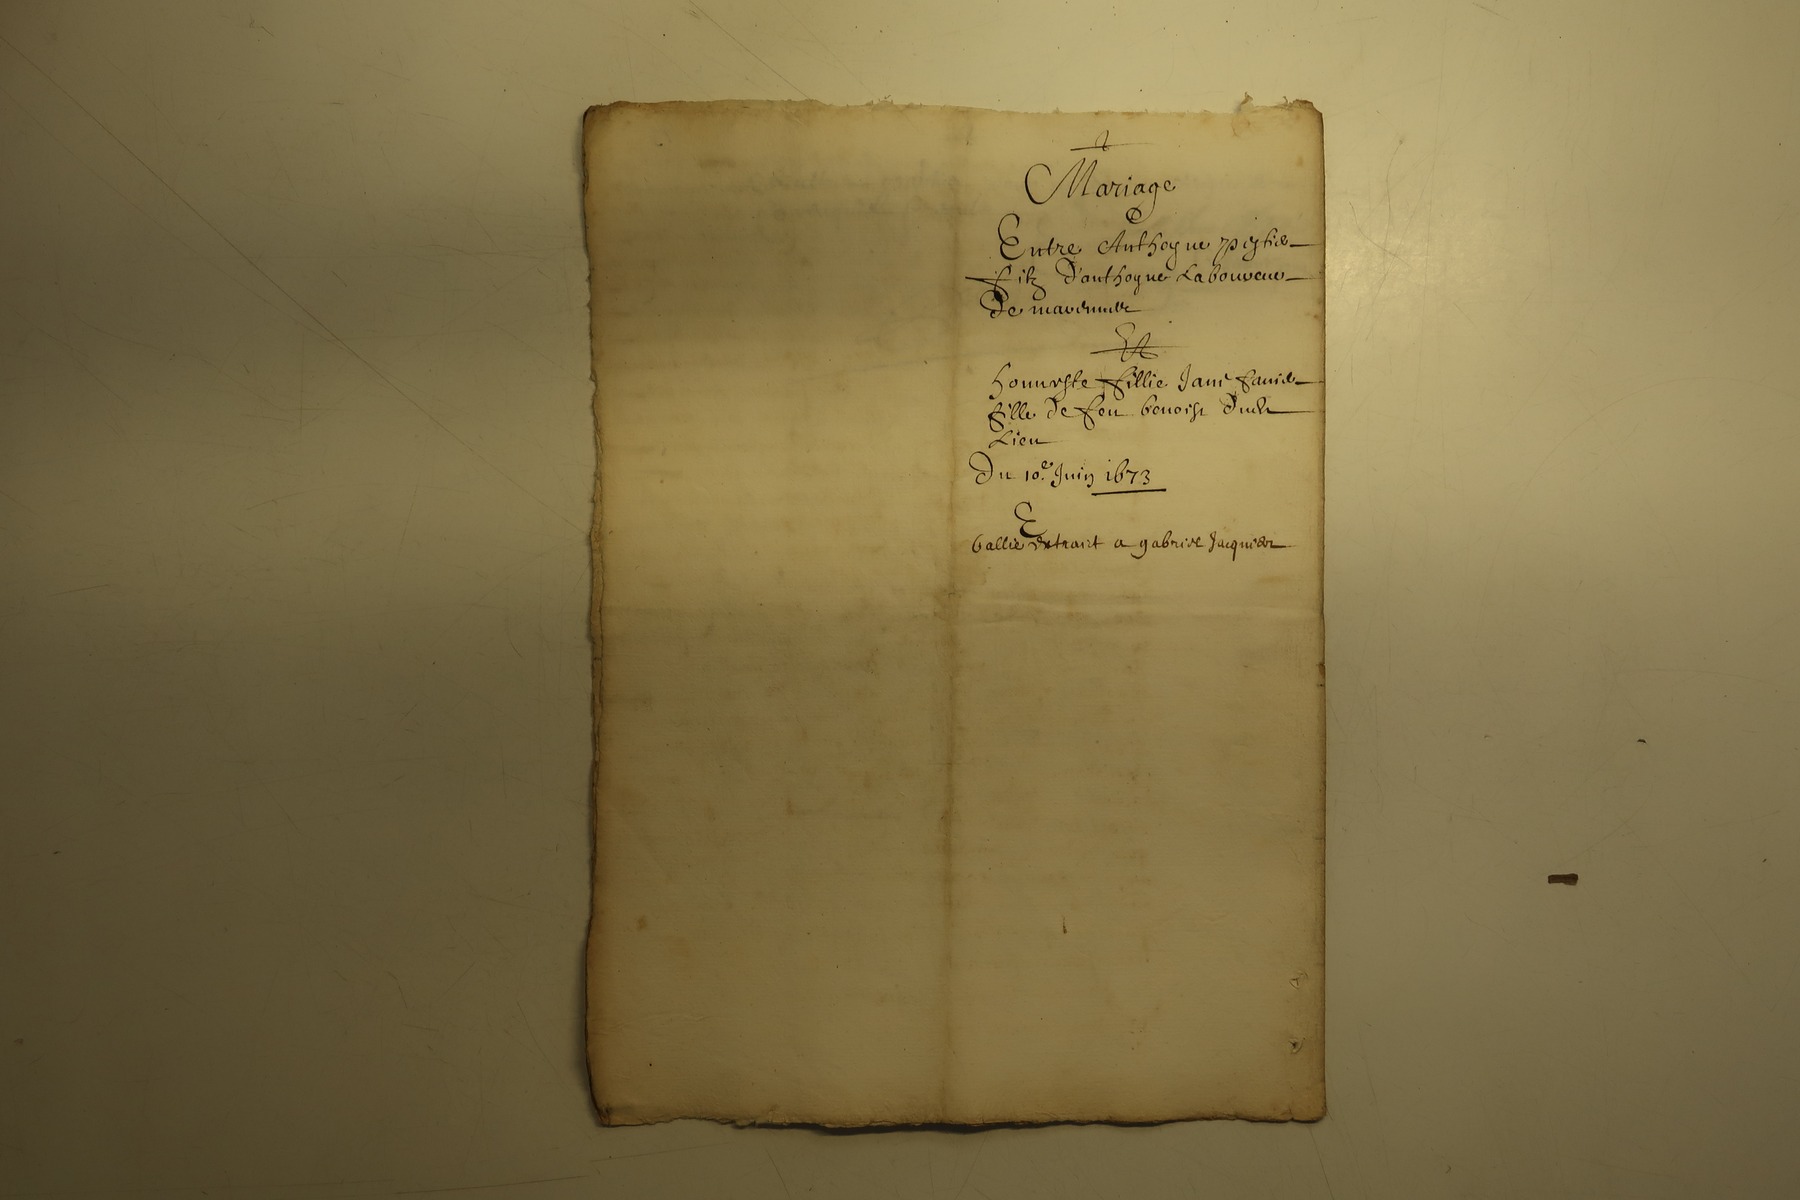 Mariage
Entre Anthoyne
Filz D'anthoyne Laboureur
De
Et
honneste fillie Jane
fille de feu benoist dudt
Lieu
Du 10e Juin 1673
E
Ballie extraict a gabriel Jacquier